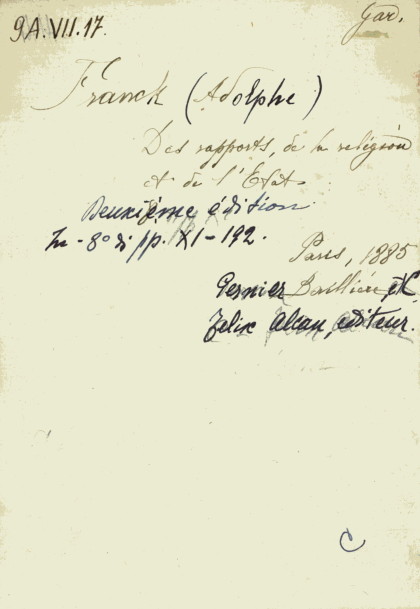 9A.VII.17.
Gar.
Franck (Adolphe)
Des rapports, de la religion
et de l'Etat.
Deuxième édition.
In-8° di pp. XI-192.
Paris, 1885
Germer Baillière et C.
Felix Alcan, editeur.
C